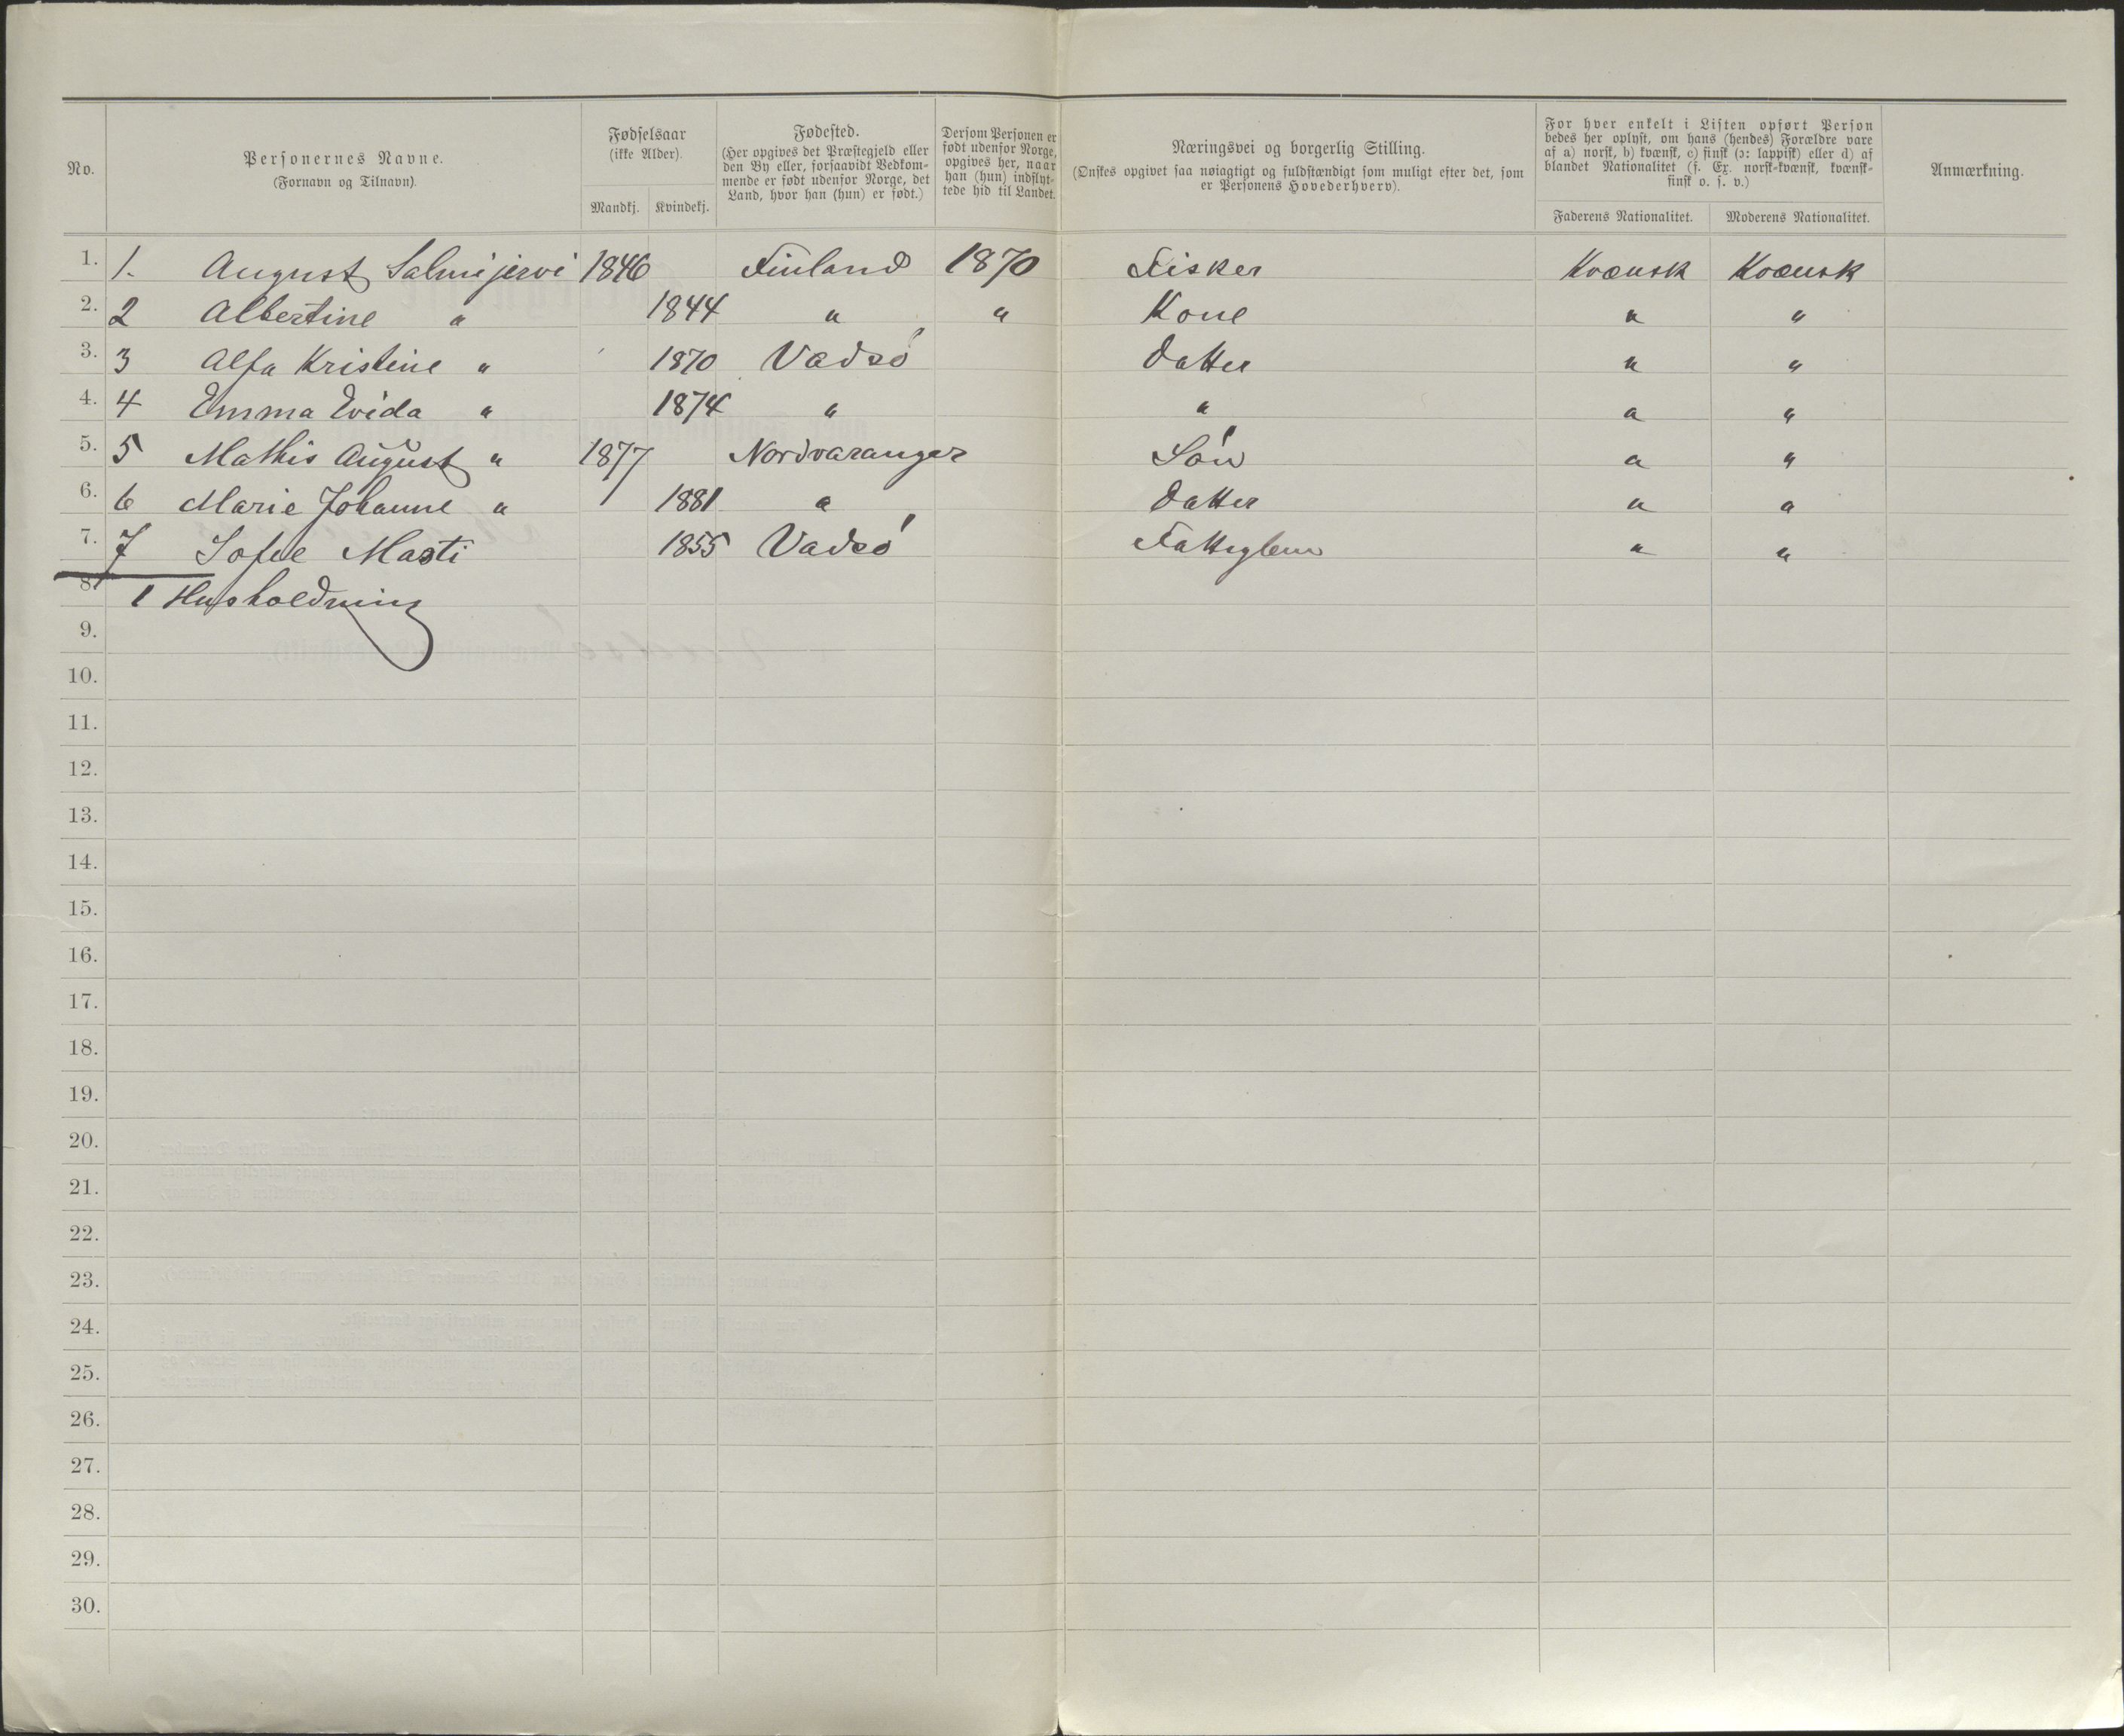 No.
Personernes Navne.
(Fornavn og Tilnavn).
Fødselsaar
(ikke Alder).
Mandkj. Kvindekj.
Fødested.
(Her opgives det Præstegjeld eller
den By eller, forsaavidt Vedkom-
mende er født udenfor Norge, det
Land, hvor han (hun) er født.)
Dersom Personen er
født udenfor Norge,
opgives her, naar
han (hun) indflyt-
tede hid til Landet.
Næringsvei og borgerlig Stilling.
(Ønskes opgivet saa nøiagtigt og fuldstændigt som muligt efter det, som
er Personens Hovederhverv).
For hver enkelt i Listen opført Person
bedes her oplyst, om hans (hendes) Forældre vare
af a) norsk, b) kvænsk, c) finsk (ɔ: lappisk) eller d) af
blandet Nationalitet (f. Ex. norsk-kvænsk, kvænsk-
finsk o. s. v.)
Faderens Nationalitet. Moderens Nationalitet.
Anmærkning.
1. 1. August Salmijervi 1846 Finland 1870 Fisker Kvænsk Kvænsk
2. 2 Albertine " 1844 " " Kone " "
3. 3 Alfa Kristine " 1870 Vadsó Datter " "
4. 4 Emma Evida " 1874 " " " "
5. 5 Mathis August " 1877 Nordvaranger Són " "
6. 6 Marie Johanne " 1881 " Datter " "
7. 7 Sofie Masti 1855 Vadsó Fattiglem " "
8. 1 Husholdning
9.
10.
11.
12.
13.
14.
15.
16.
17.
18.
19.
20.
21.
22.
23.
24.
25.
26.
27.
28.
29.
30.